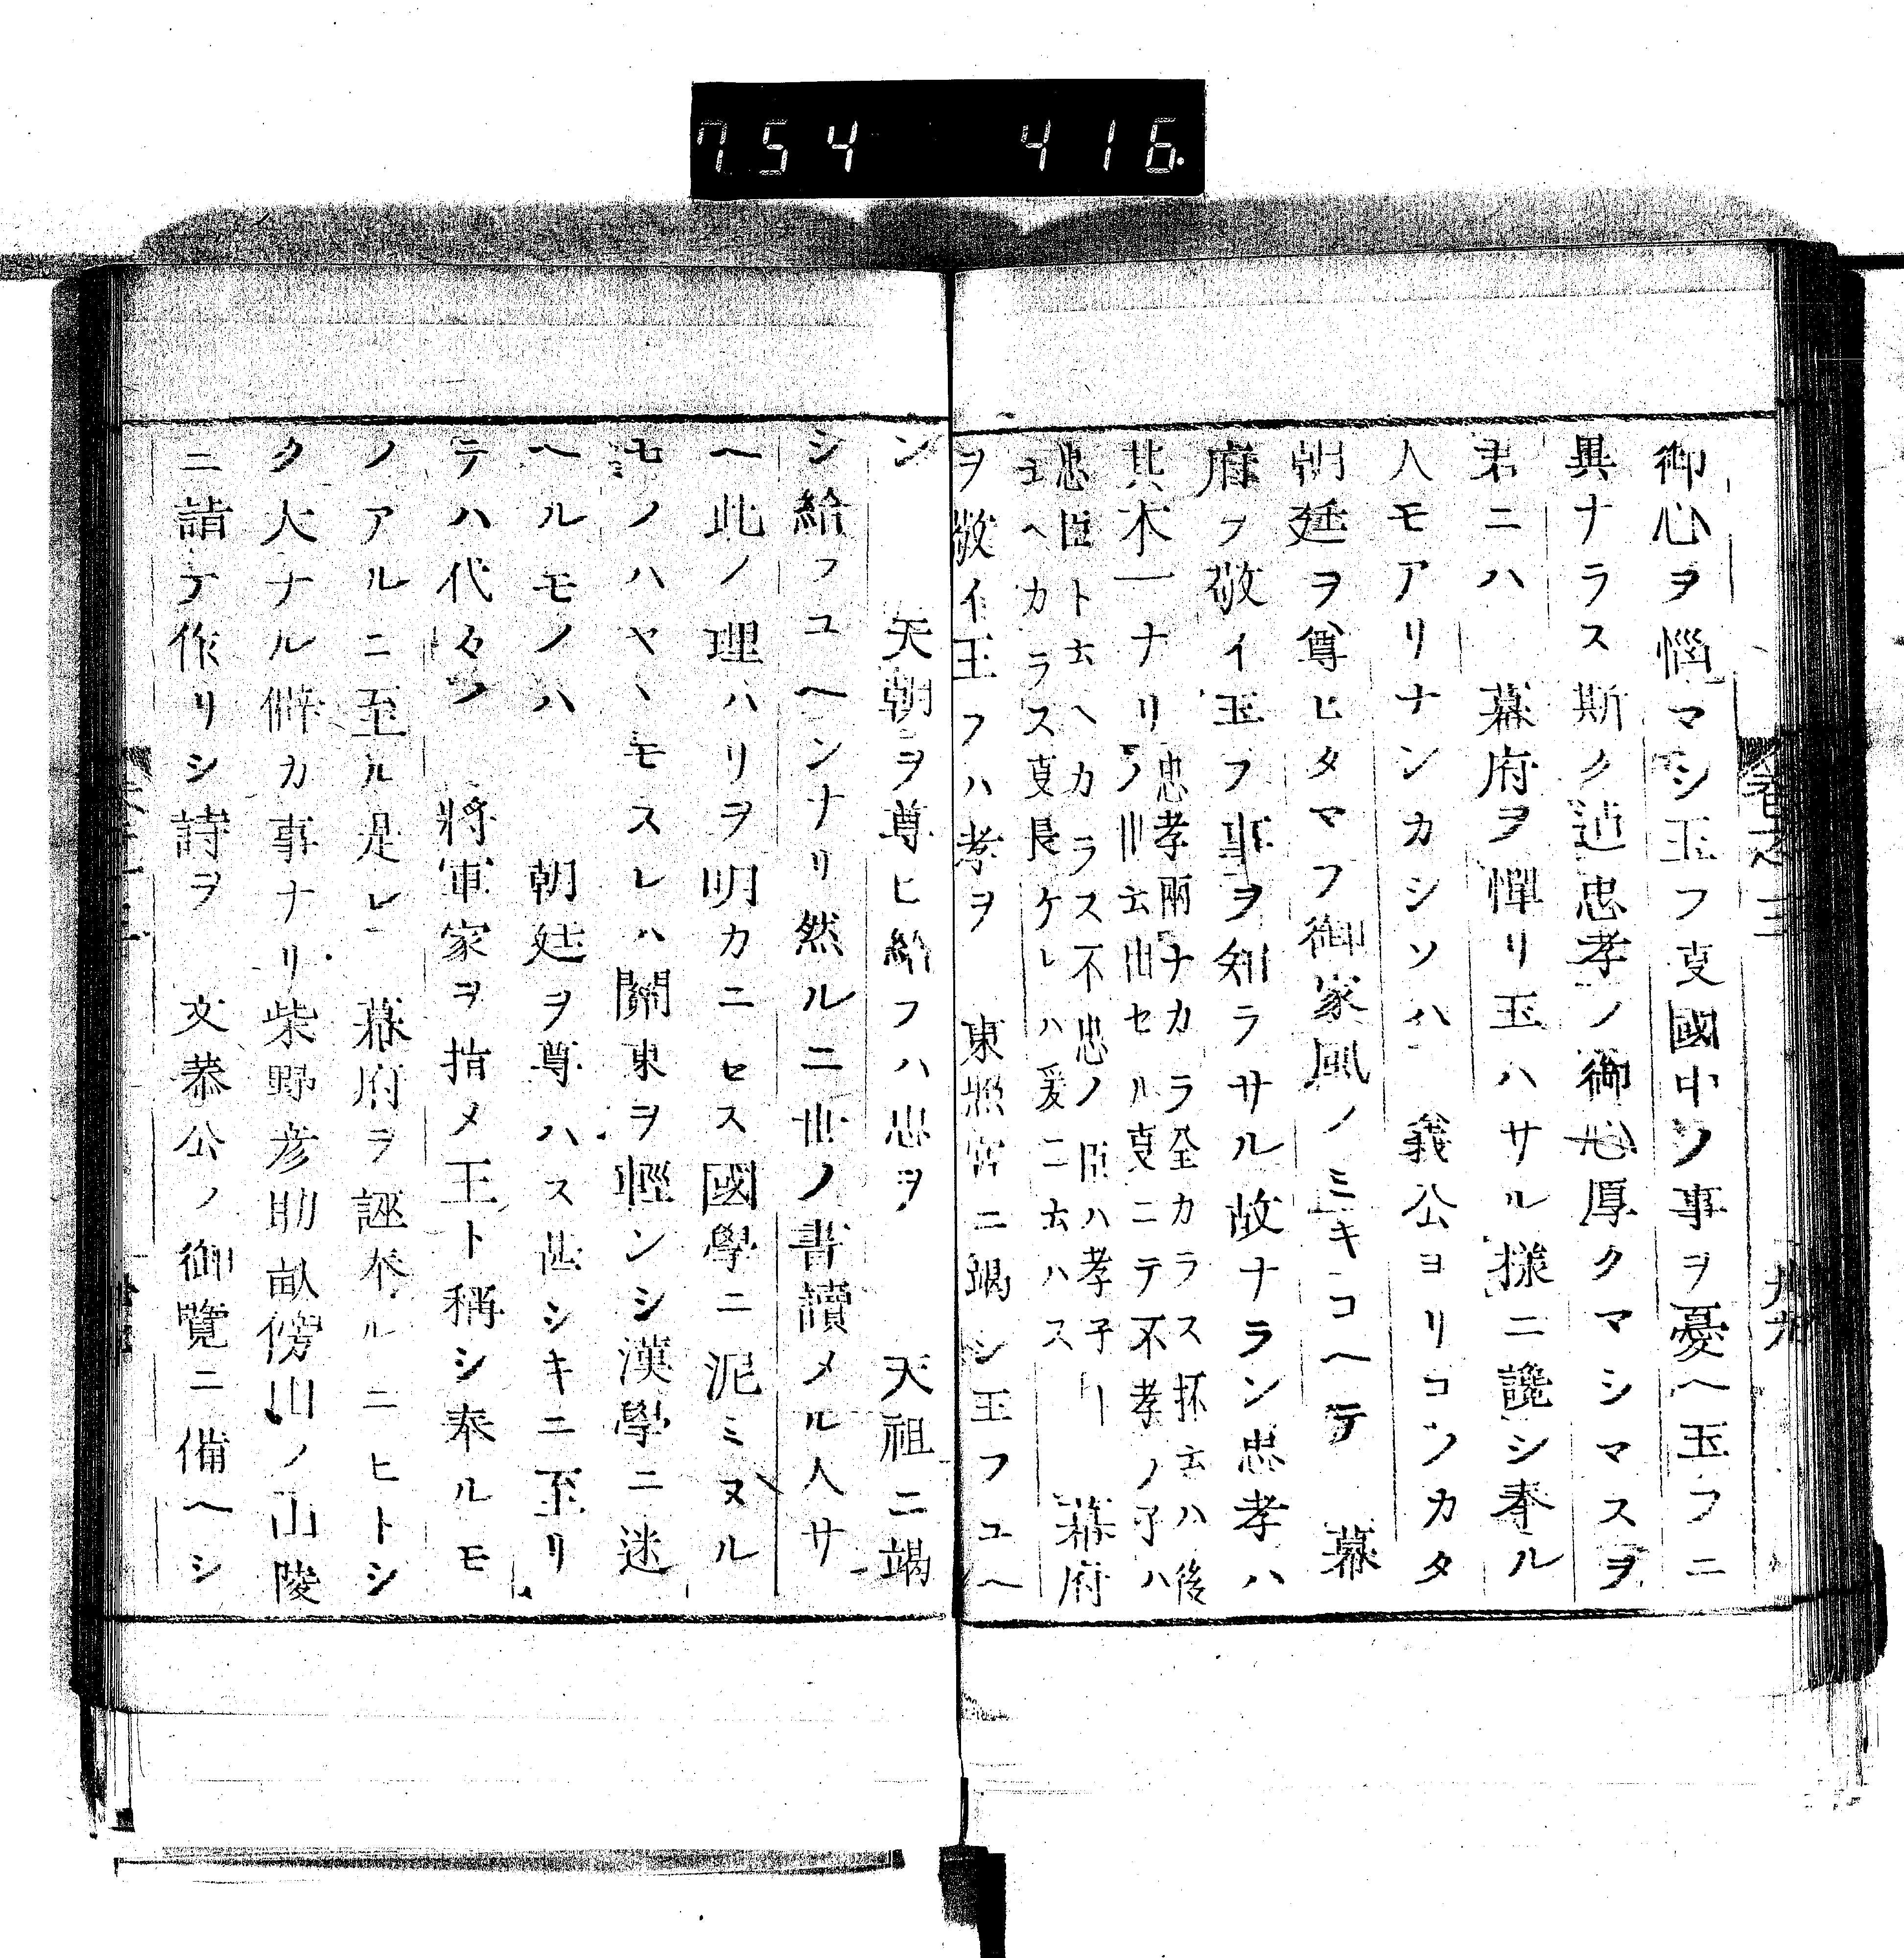 754 416.
御心ヲ惱マシ玉フ叓國中ノ事ヲ憂ヘ玉フニ
異ナラス斯ク迠忠孝ノ御心厚クマシマスヲ
弟ニハ 幕府ヲ憚リ玉ハサル樣ニ讒シ奉ル
人モアリナンカシソハ 義公ヨリコノカタ
朝廷ヲ尊ヒタマフ御家風ノミキコヘテ 幕
府ヲ敬イ玉フ事ヲ知ラサル故ナラン忠孝ハ
其木一ナリ
忠孝兩ナカラ全カラス抔云ハ後
ノ世云出セル叓ニテ不孝ノ子ハ
忠臣ト云ヘカラス不忠ノ臣ハ孝子ー
ユヘカラス叓長ケレハ爰ニ云ハス
幕府
ヲ敬イ玉フハ孝ヲ 東照宮ニ竭シ玉フユヘ
ン 天朝ヲ尊ヒ給フハ忠ヲ 天祖ニ竭
シ給フユヘンナリ然ルニ世ノ書讀メル人サ
ヘ此ノ理ハリヲ明カニセス國學ニ泥ミヌル
モノハヤヽモスレハ關東ヲ輕ンシ漢學ニ迷
ヘルモノハ 朝廷ヲ尊ハス甚シキニ至リ
テハ代々ノ 將軍家ヲ指メ王ト稱シ奉ルモ
ノアルニ至ル是レ 幕府ヲ誣奉ルニヒトシ
ク大ナル僻カ事ナリ柴野彦助畝傍山ノ山陵
ニ詣テ作リシ詩ヲ 文恭公ノ御覽ニ備ヘシ